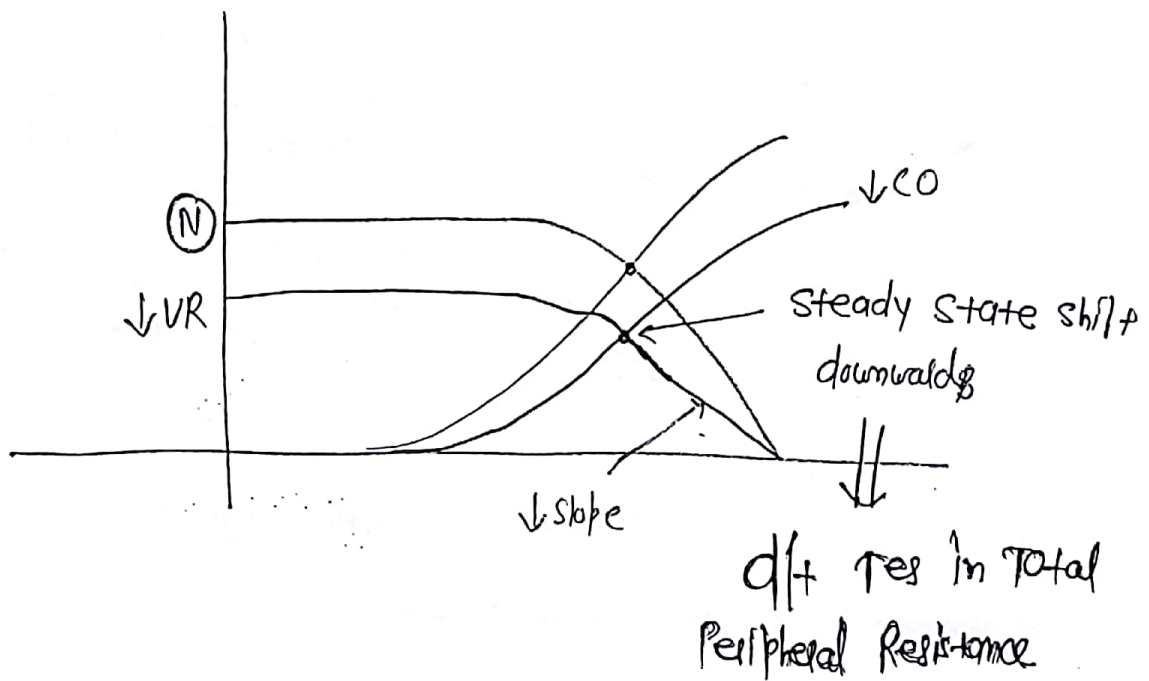 N
↓ VR
↓ CO
steady state shift
downwards
↓ slope
d/t ↑es in Total
Peripheral Resistance